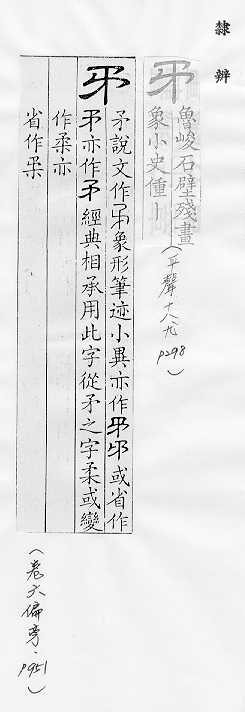 隸辨
魯峻石壁殘畫
象小史僮|
(平聲十八尤 P298)
矛說文作象形筆迹小異亦作或省作
亦作經典相承用此字從矛之字柔或變
作柔亦
省作
(卷六偏旁·P951)